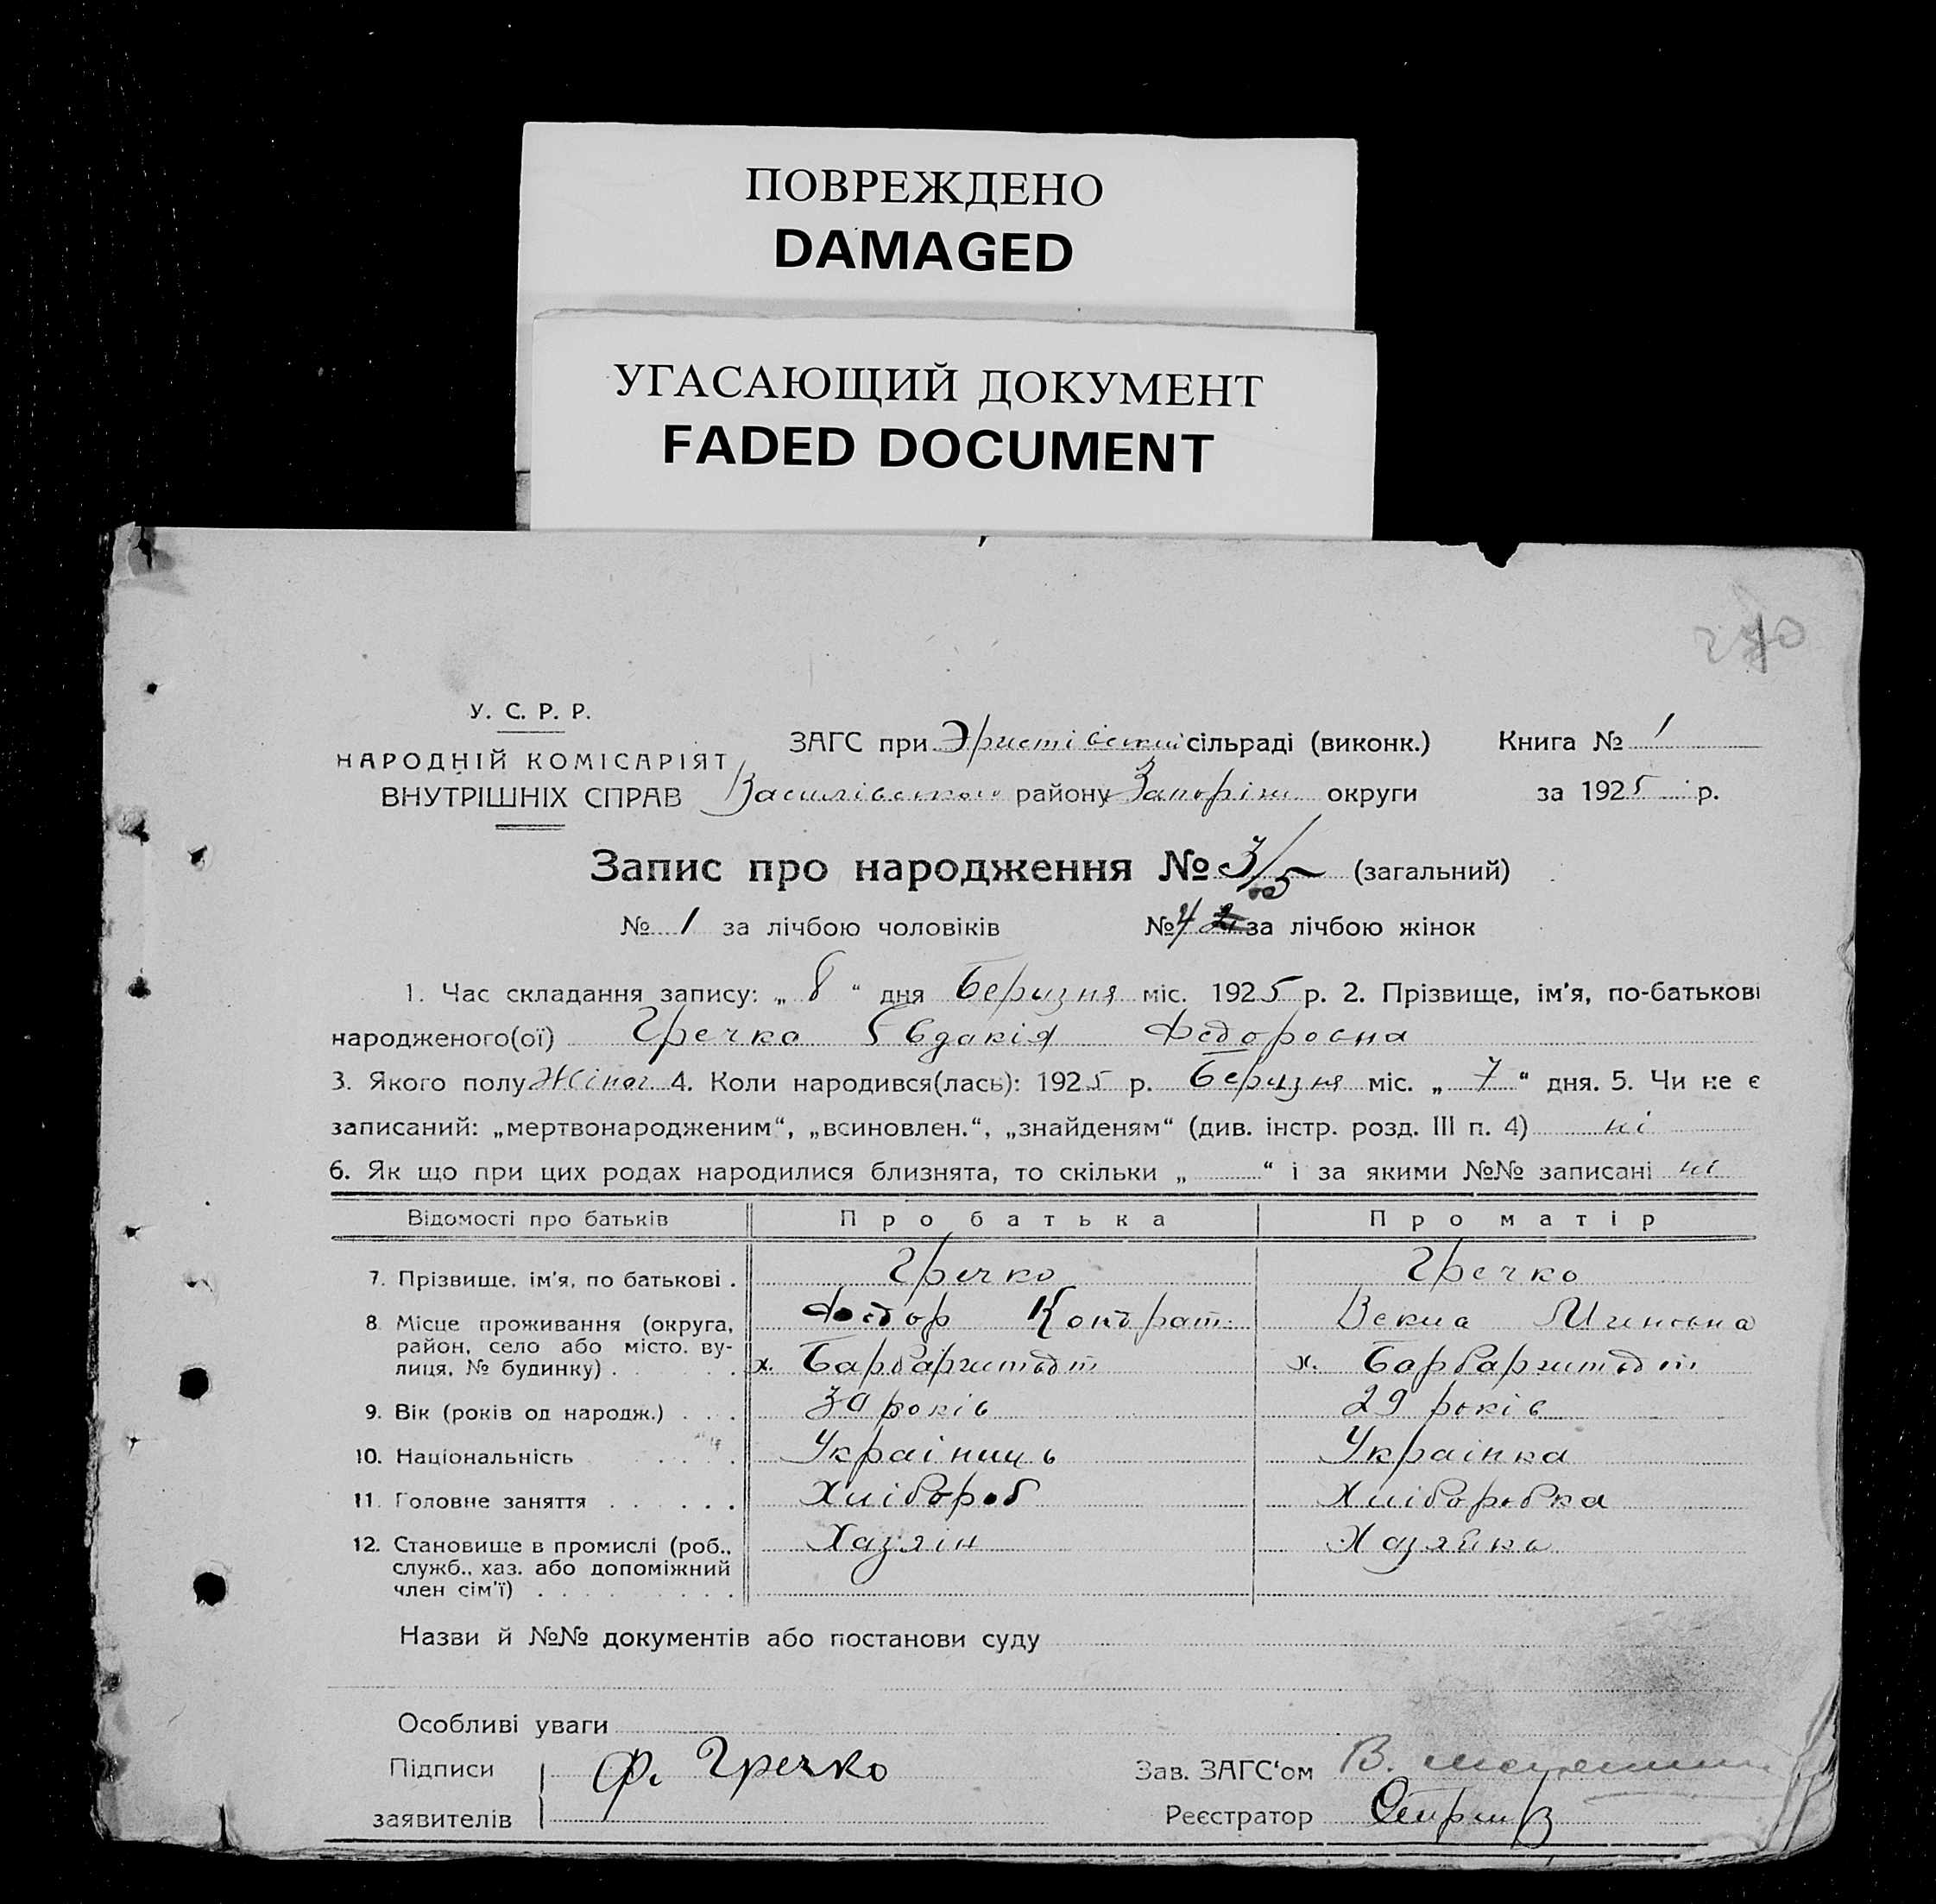 ПОВРЕЖДЕНО
DAMAGED
УГАСАЮЩИЙ ДОКУМЕНТ
FADED DOCUMENT
У. С. Р. Р.
НАРОДНІЙ КОМІСАРІЯТ
ВНУТРІШНІХ СПРАВ
ЗАГС при Эристівській сільраді (виконк.) Книга № 1
Василівського району Запоріж. округи за 1925 р.
Запис про народження № 5 (загальний)
№ 1 за лічбою чоловіків № 4 за лічбою жінок
1. Час складання запису: „ 8 “ дня березня міс. 1925 р. 2. Прізвище, ім'я, по-батькові
народженого(ої) Гречко Євдакія Федоровна
3. Якого полу Жіноч 4. Коли народився(лась): 1925 р. березня міс. „ 7 “ дня. 5. Чи не є
записаний: „мертвонародженим“, „всиновлен.“, „знайденям“ (див. інстр. розд. III п. 4) ні
6. Як що при цих родах народилися близнята, то скільки „ “ і за якими №№ записані ні
Відомості про батьків Про батька Про матір
7. Прізвище, ім'я, по батькові . Гречко Гречко
8. Місце проживання (округа, Федор Кондрат.
район, село або місто. ву-
лиця, № будинку) . . х. Барбарштадт х. Барбарштадт
9. Вік (років од народж.) . . . 30 років 29 років
10. Національність . . . . Україниць Українка
11. Головне заняття . . . . . . Хлібороб Хлібороbка
12. Становище в промислі (роб., Хазяін Хазяйка
служб., хаз. або допоміжний
член сім'ї) . . . . . . . . .
Назви й №№ документів або постанови суду
Особливі уваги
Підписи Ф. Гречко Зав. ЗАГС'ом В.
заявителів Реєстратор